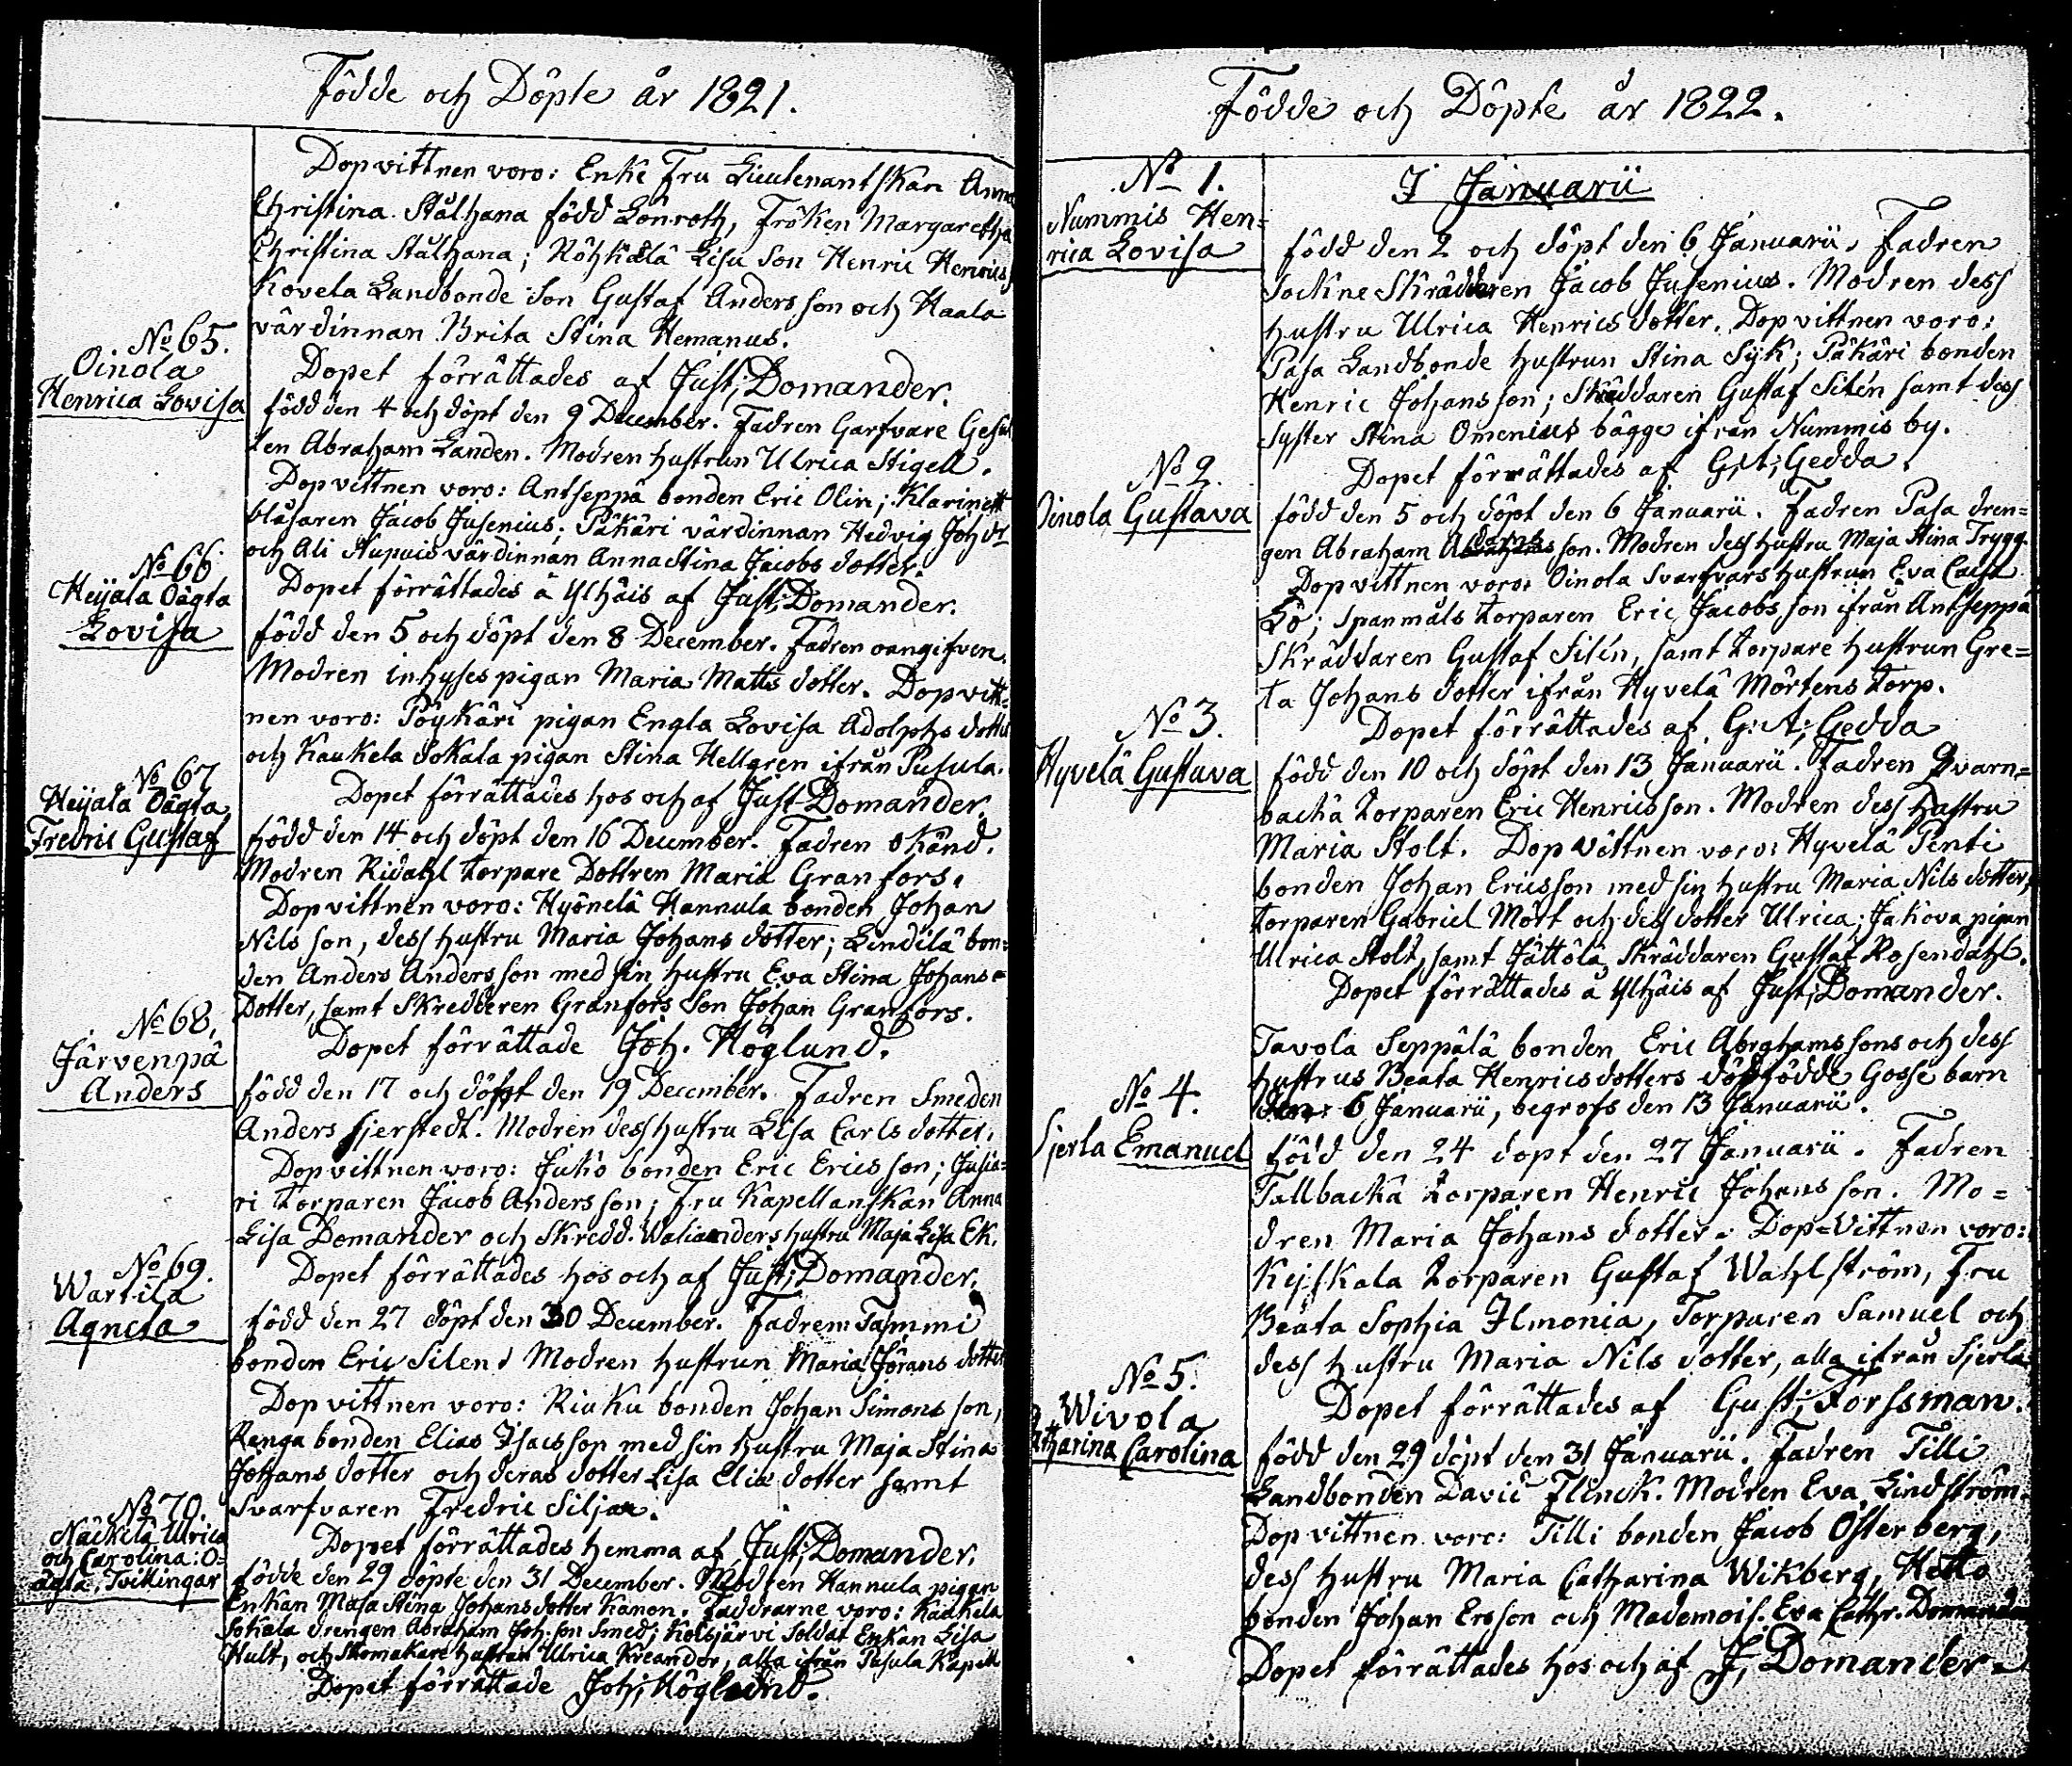 Födde och Döpte år 1821.
Dopvittnen voro: Enke Fru Lieutenantskan Anna
Christina Stålhana född Lönroth, Fröken Margaretha
Christina Stålhana; Röhkälä Lisu Son Henric Henrics
Kovela Landbonde Son Gustaf Andersson och Haala
värdinnan Brita Stina Hemanus.
Dopet förrättades af Just; Domander.
No 65.
Oinola
Henrica Lovisa
född den 4 och döpt den 9 December. Fadren Garfvare Gesäl
len Abraham Landen. Modren hustrun Ulrica Stigell.
Dopvittnen voro: Antseppä bonden Eric Olin; Klarinett
blåsaren Jacob Jusenius; Päkäri värdinnan Hedvig Joh dr
och Ali Nupuis värdinnan Anna Stina Jacobs dotter.
Dopet förrättades å Ylhäis af Just; Domander.
No 66
Heijala Oägta
Lovisa
född den 5 och döpt den 8 December. Fadren oangifven.
Modren inhyses pigan Maria Matts dotter. Dopvitt=
nen voro: Pöykäri pigan Engla Lovisa Adolphs dotter
och Kaukela Sokala pigan Stina Hellgren ifrån Pusula.
Dopet förrättades hos och af Just Domander.
No 67
Heijala Oägta
Fredric Gustaf
född den 14 och döpt den 16 December. Fadren okänd.
Modren Ridahl torpare Dottren Maria Granfors.
Dopvittnen voro: Hyönelä Hannula bonden Johan
Nils son, dess hustru Maria Johans dotter; Lindilä bon=
den Anders Andersson med sin hustru Eva Stina Johans=
Dotter, samt Skredderen Granfors Son Johan Granfors.
Dopet förrättade Joh. Höglund.
No 68.
Järvenpä
Anders
född den 17 och döpt den 19 December. Fadren Smeden
Anders Sjerstedt. Modren dess hustru Lisa Carls dotter.
Dopvittnen voro: Juko bonden Eric Ericsson; Julis=
ri torparen Jacob Andersson; Fru Kapellanskan Anna
Lisa Domander och Skredd. Walianders hustru Maja Lisa Ek.
Dopet förrättades hos och af Just; Domander.
No 69.
Wartila
Agneta
född den 27 döpt den 30 December. Fadren Tammi
bonden Eric Silen. Modren hustrun Maria Jörans dotter
Dopvittnen voro: Riuku bonden Johan Simons son,
Renga bonden Elias Isacsson med sin hustru Maja Stina
Johans dotter och deras dotter Lisa Elia dotter samt
Svarfvaren Fredric Siljan.
Dopet förrättades hemma af Just; Domander.
No 70.
Näckilä Ulrica
och Carolina: O=
ägta, Tvillingar
födde den 29 döpte den 31 December. Modren Hannula pigan
Enkan Maja Stina Johans dotter Kanon. Faddrarne voro: Kaukela
Sokala drengen Abraham Joh. son Smed; Kolsjärvi Soldat Enkan Lisa
Hult, och Skomakare hustrun Ulrica Kreander, alla ifrån Pusula Kapell
Dopet förrättade Joh; Höglund.
Födde och Döpte år 1822.
I Januarii
No 1.
Nummis Hen=
rica Lovisa
född den 2 och döpt den 6 Januarii. Fadren
Sockne Skräddaren Jacob Jusenius. Modren dess
hustru Ulrica Henrics dotter. Dopvittnen voro:
Pasa Landbonde hustrun Stina Syk; Päkäri bonden
Henric Johansson; Skräddaren Gustaf Silén samt dess
syster Stina Omenius bägge ifrån Nummis by.
Dopet förrättades af G; A; Gedda.
No 2.
Oinola Gustava
född den 5 och döpt den 6 Januarii. Fadren Pasa dren=
gen Abraham son. Modren dess hustru Maja Stina Trygg.
Dopvittnen voro: Oinola Svarfvars hustrun Eva Caisa
Lö; Spanmåls torparen Eric Jacobs son ifrån Antseppä
Skräddaren Gustaf Silén, samt torpare hustrun Gre=
ta Johans dotter ifrån Hyvelä Mörtens torp.
Dopet förrättades af G: A; Gedda
No 3.
Hyvelä Gustava
född den 10 och döpt den 13 Januarii. Fadren Qvarn=
backa torparen Eric Henricsson. Modren dess hustru
Maria Stolt. Dopvittnen voro: Hyvelä Penti
bonden Johan Ericsson med sin hustru Maria Nils dotter,
torparen Gabriel Mört och dess dotter Ulrica; Jakova pigan
Ulrica Stolt, samt Jättölä Skräddaren Gustaf Rosendahl.
Dopet förrättades å Ylhäis af Just; Domander.
Tavola Seppälä bonden Eric Abrahamssons och dess
hustrus Beata Henricsdotters dödfödde Gosse barn
den 6 Januarii, begrofs den 13 Januarii.
No 4.
Sjerla Emanuel
född den 24 döpt den 27 Januarii. Fadren
Tallbacka torparen Henric Johans son. Mo=
dren Maria Johans dotter. Dop=Vittnen voro:
Kejskala torparen Gustaf Wahlström, Fru
Beata Sophia Ilmonia, Torparen Samuel och
dess hustru Maria Nils dotter, alla ifrån Sjerla
Dopet förrättades af Gust; Forssman.
No 5.
Wivola
Catharina Carolina
född den 29 döpt den 31 Januarii. Fadren Tilli
Landbonden David Flinck. Modren Eva Lindström.
Dopvittnen voro: Tilli bonden Jacob Österberg,
dess hustru Maria Catharina Wikberg, Hetto
bonden Johan Ersson och Mademois. Eva Cathr. Domander
Dopet förrättades hos och af J; Domander.